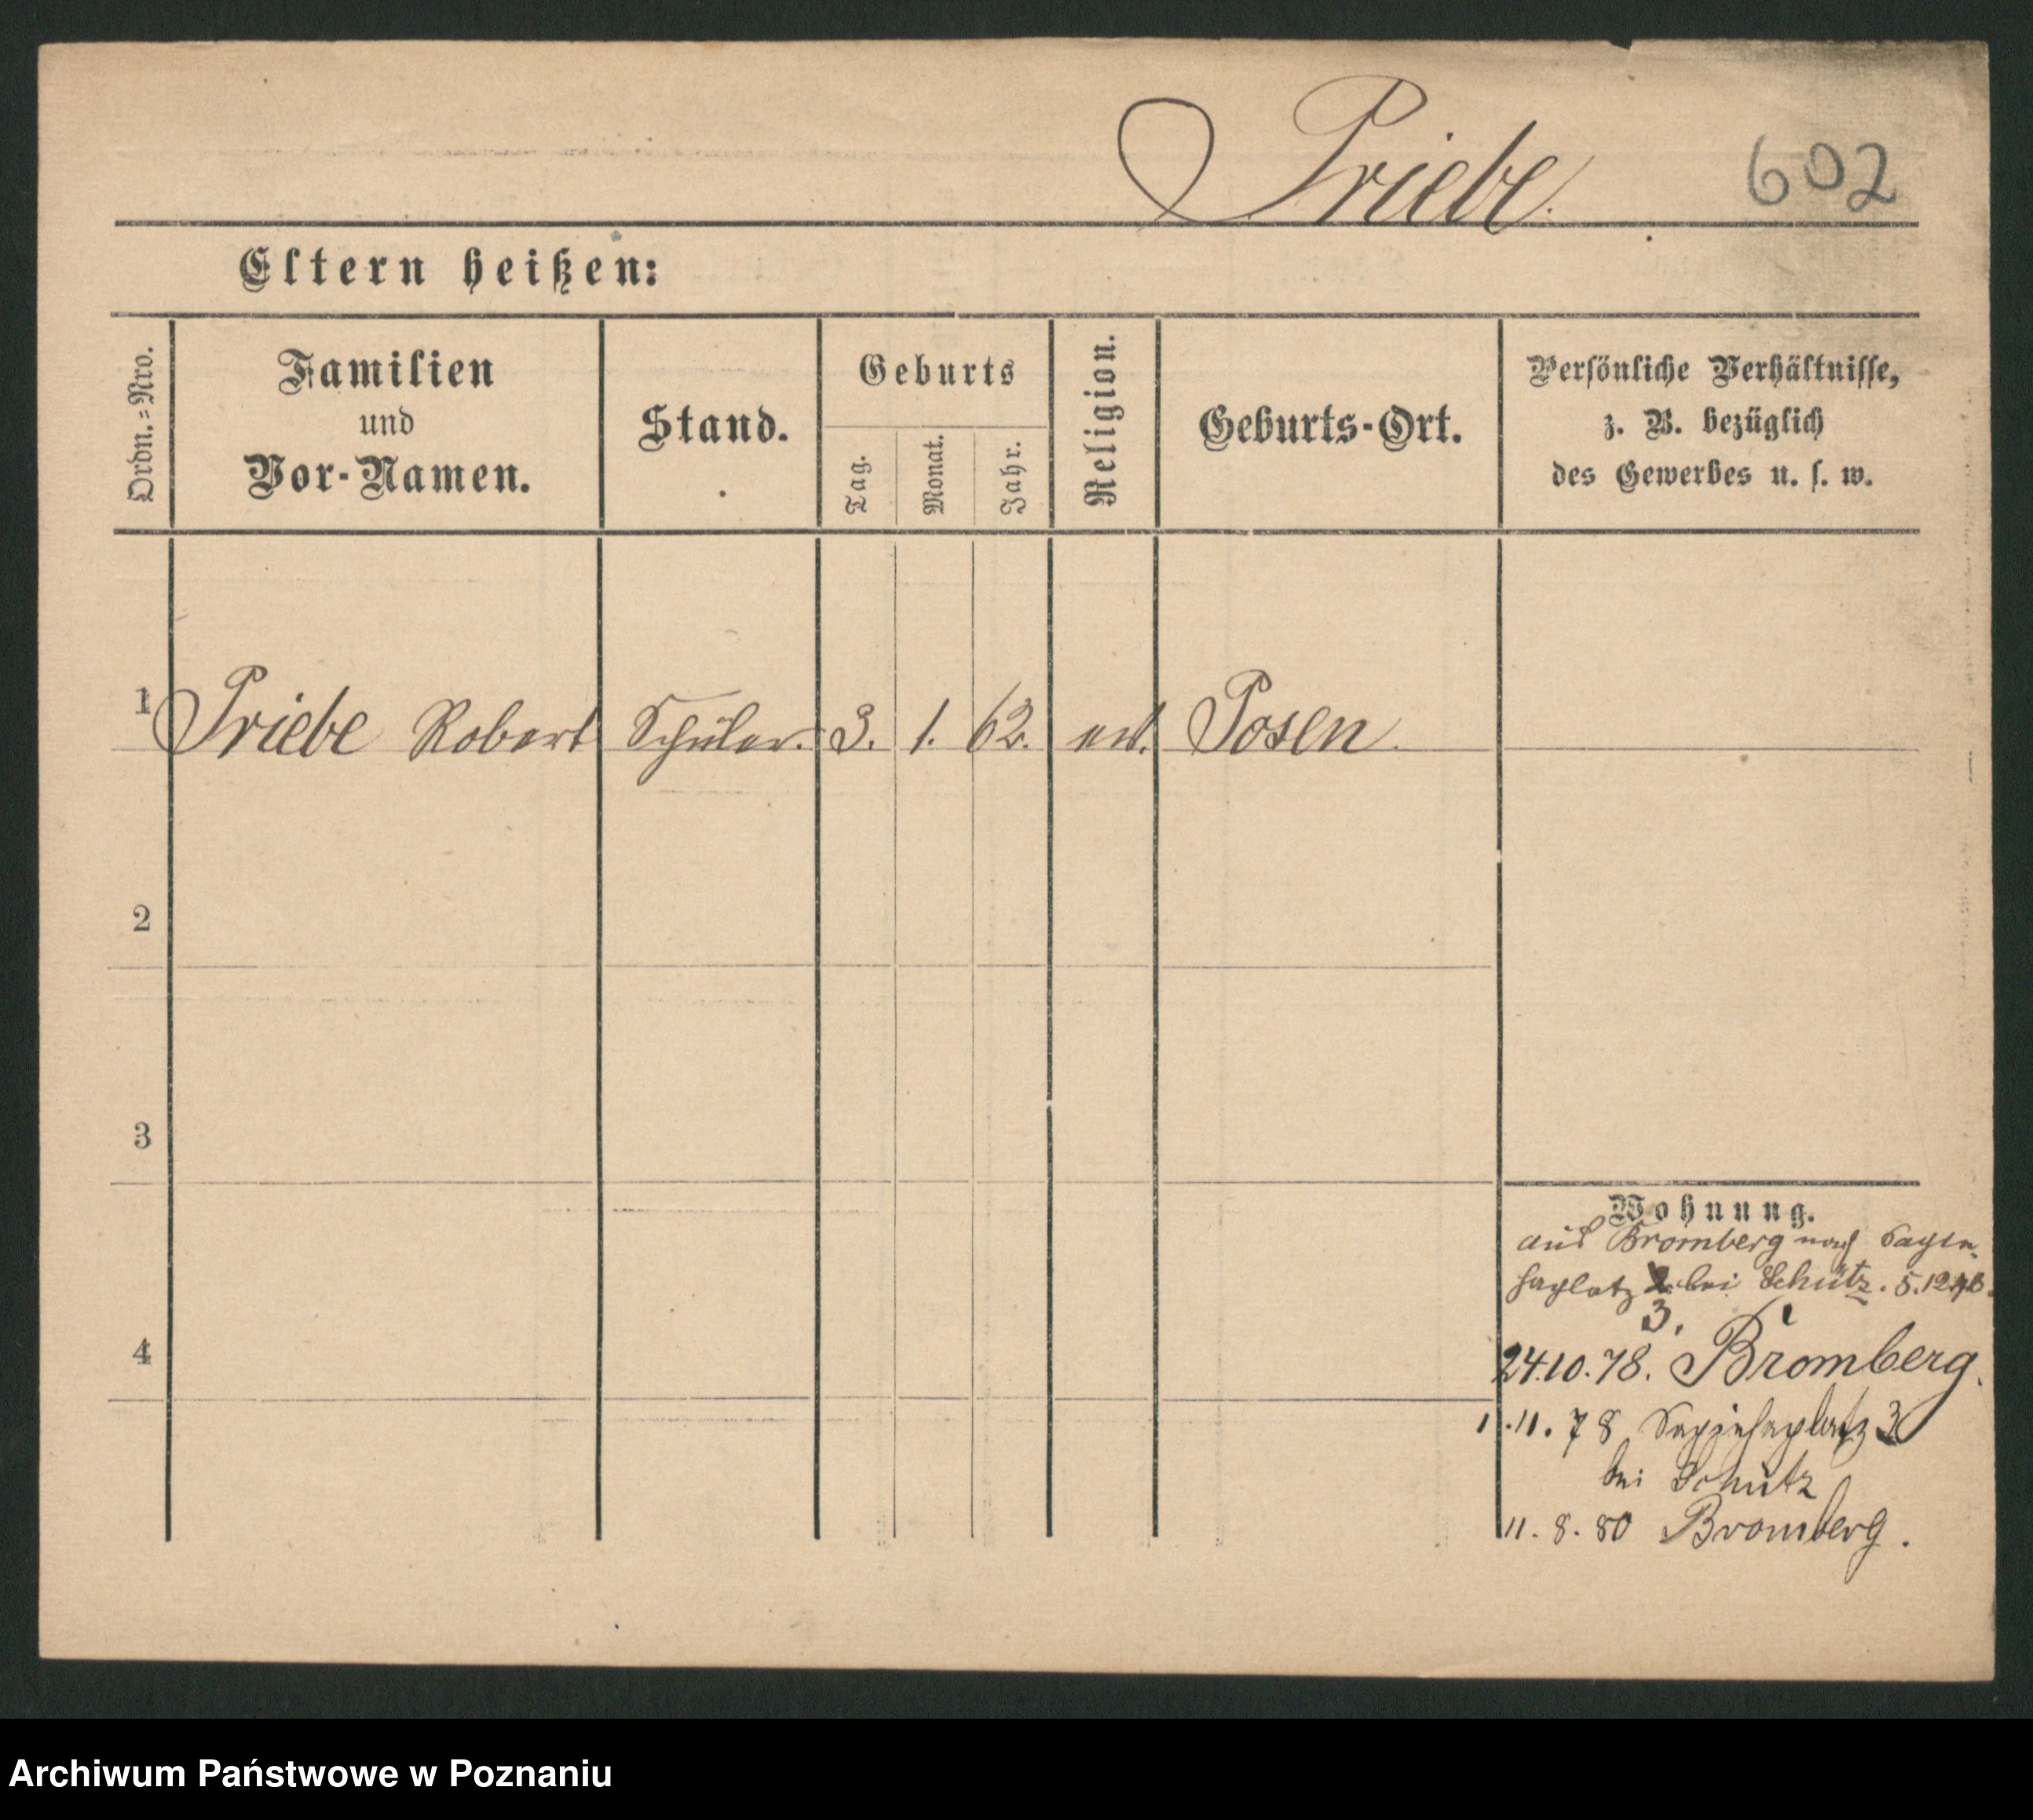 Priebe. 602
Eltern heißen:
Ordn.=Nro.
Familien
und
Vor-Namen.
Stand.
Geburts
Tag.
Monat.
Jahr.
Religion.
Geburts-Ort.
Persönliche Verhältnisse,
z. B. bezüglich
des Gewerbes u. s. w.
1 Priebe Robert Schüler. 3. 1. 62. Posen.
2
3
4
Wohnung.
aus Bromberg nach
bei Schütz. 5.12.
3.
24.10.78. Bromberg.
1.11.78 Sapiehaplatz 3
bei Schütz
11.8.80 Bromberg.
Archiwum Państwowe w Poznaniu